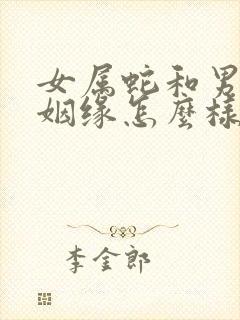 女属蛇和男
姻缘怎麼様
李金郎